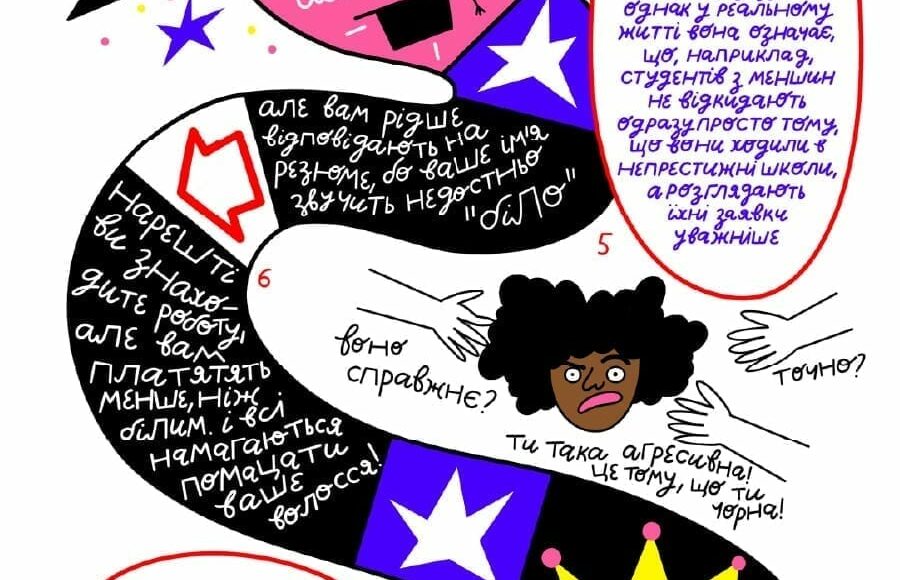 однак у реальному
житті вона означає,
що, наприклад,
студентів з меншин
не відкидають
одразу просто тому,
що вони ходили в
непрестижні школи,
а розглядають
їхні заявки
уважніше
5
але вам рідше
відповідають на
резюме, бо ваше ім'я
звучить недостньо
"біло"
6
нарешті
ви знахо-
дите роботу,
але вам
платятять
менше, ніж
білим. і всі
намагаються
помацати
ваше
волосся!
воно
справжнє?
точно?
ти така агресивна!
це тому, що ти
чорна!